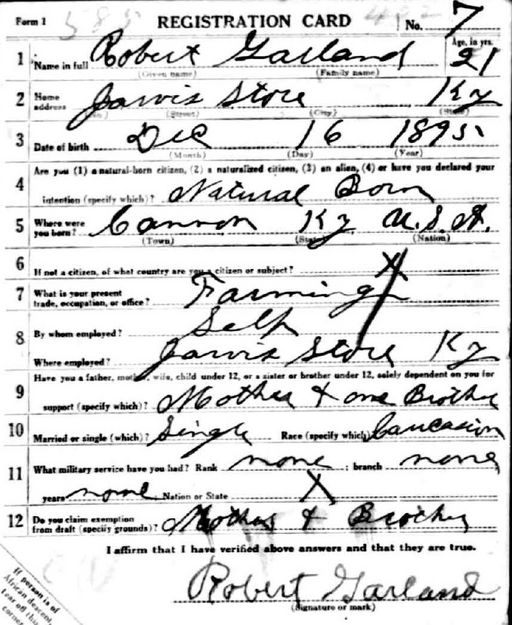 Form 1 REGISTRATION CARD No. 7
Age, in yrs.
1 Name in full Robert Garland 21
(Given name) (Family name)
2 Home address Jarvis Store Ky
(Street) (City) (State)
3 Date of birth Dec 16 1895
(Month) (Day) (Year)
4 Are you (1) a natural-born citizen, (2) a naturalized citizen, (3) an alien, (4) or have you declared your
intention (specify which)? Natural Born
5 Where were you born? Cannon Ky U.S.A.
(Town) (State) (Nation)
6 If not a citizen, of what country are you a citizen or subject? X
7 What is your present trade, occupation, or office? Farming
8 By whom employed? Self
Where employed? Jarvis Store Ky
9 Have you a father, mother, wife, child under 12, or a sister or brother under 12, solely dependent on you for
support (specify which)? Mother & one Brother
10 Married or single (which)? Single Race (specify which) Caucasion
11 What military service have you had? Rank none ; branch none
years none Nation or State X
12 Do you claim exemption from draft (specify grounds)? Mother & Brother
I affirm that I have verified above answers and that they are true.
Robert Garland
(Signature or mark)
If person is of
African descent,
tear off this
corner